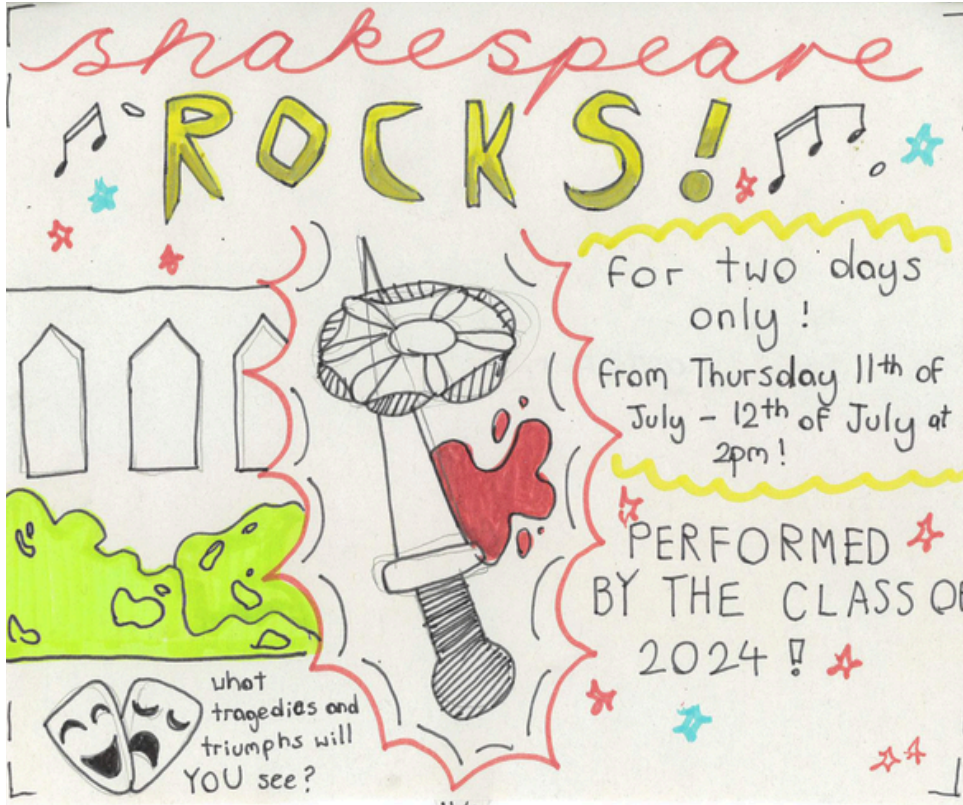 shakespeare
ROCKS!
For two days
only!
from Thursday 11th of
July - 12th of July at
2pm!
PERFORMED
BY THE CLASS OF
2024!
what
tragedies and
triumphs will
YOU see?